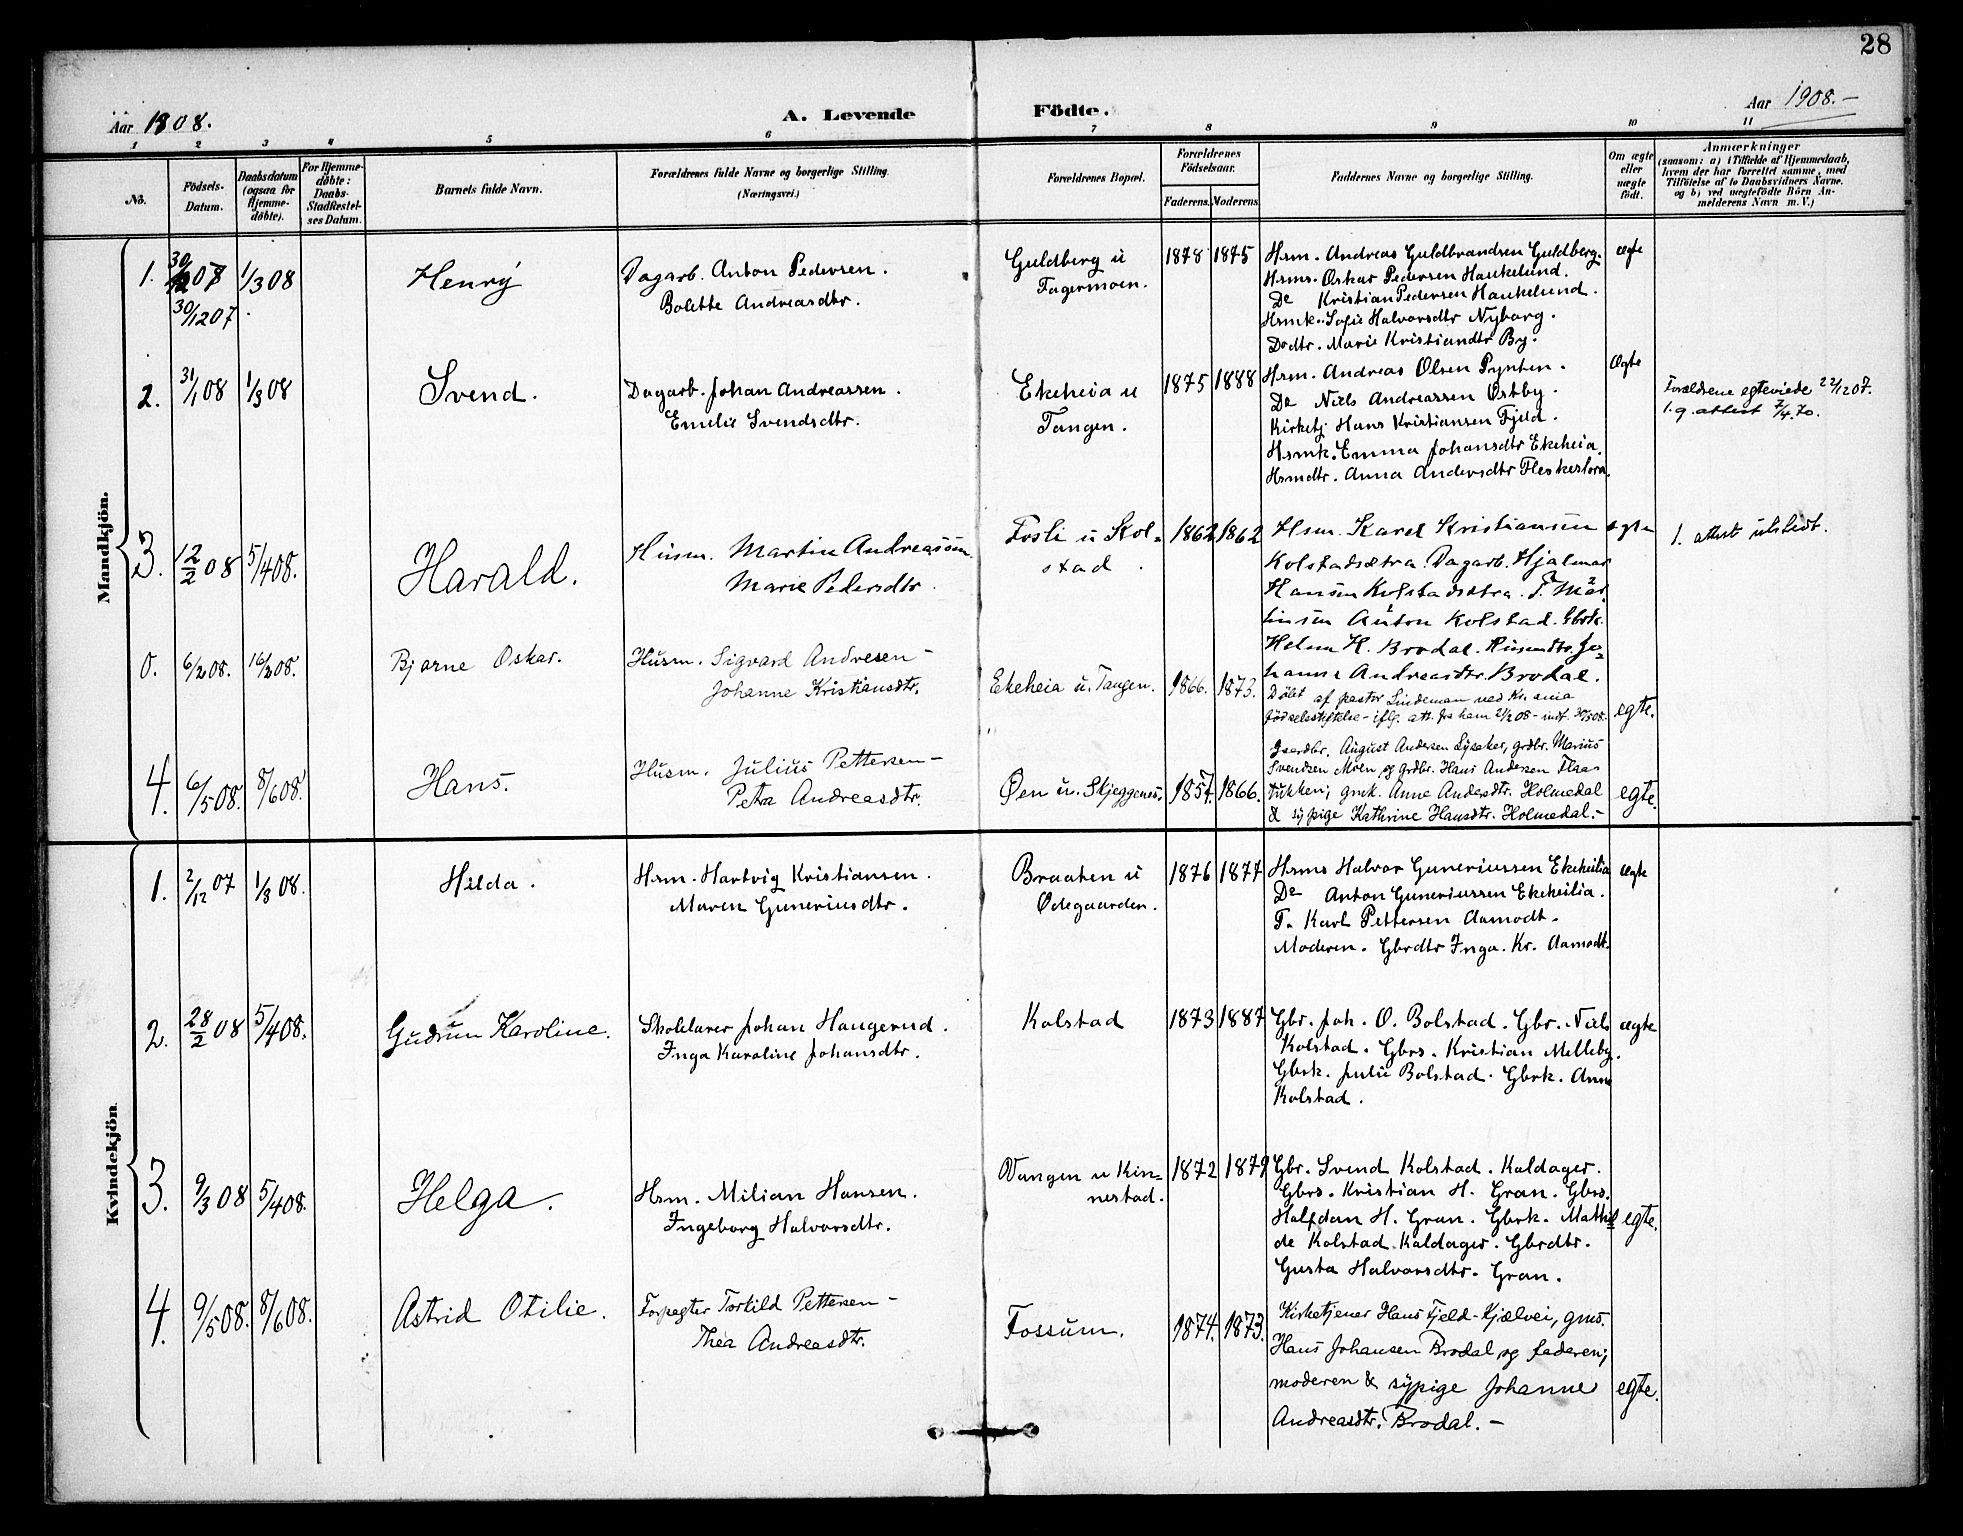 28
Aar 1908.
A. Levende Födte.
Aar 1908.-
1 2 3 4 5 6 7 8 9 10 11
No.
Födsels-Datum.
Daabsdatum (ogsaa for Hjemme-döbte).
For Hjemme-döbte: Daabs-Stadfæstel-ses Datum.
Barnets fulde Navn.
Forældrenes fulde Navne og borgerlige Stilling
(Næringsvei.)
Forældrenes Bopæl.
Forældrenes Födselsaar.
Faderens. Moderens.
Faddernes Navne og borgerlige Stilling.
Om ægte eller uægte födt.
Anmærkninger
(saasom: a) i Tilfælde af Hjemmedaab,
hvem der har forrettet samme, med
Tilföielse af to Daabsvidners Navne.
og b) ved uægtefödte Börn An-
melderens Navn m. V.)
Mandkjön.
1. 30/12 07 1/3 08 Henrÿ
30/12 07
Dagarb. Anton Pedersen.
Bolette Andreasdtr.
Guldberg u
Fagermoen.
1878 1875
Hrm. Andreas Guldbrandsen Guldberg.
Hrms. Oskar Pedersen Haukelund.
Do Kristian Pedersen Haukelund.
Hrmk. Sofie Halvorsdtr Nyborg.
Dodtr. Marie Kristiandtr By.
ægte
2. 31/1 08 1/3 08 Svend.
Dagarb. Johan Andreassen.
Emelie Svendsdtr.
Ekeheia u
Tangen.
1875 1888
Hrm. Andreas Olsen Pynten.
Do Niels Andreassen Østby.
Kirketj Hans Kristiansen Fjeld.
Hrmk. Emma Johansdtr Ekeheia.
Hrmdtr. Anna Andersdtr Fleskestora.
Ægte
Forældrene egteviede 22/12 07.
1. g. attest 7/4.70.
3. 12/2 08 5/4 08. Harald.
Husm. Martin Andreassen
Marie Pedersdtr.
Fosli u Kol-
stad.
1862 1862
Hsm. Karel Kristiansen
Kolstadsætra. Dagarb. Hjalmar
Hansen Kolstadsætra. F. Mar
tinsen Anton Kolstad. Gbrk.
Helene H. Brodal. Husmdtr. Jo-
hanne Andreasdtr. Brodal.
egte
1. attest utstedt.
0. 6/2 08. 16/2 08. Bjarne Oskar.
Husm. Sigvard Andresen -
Johanne Kristiansdtr.
Ekeheia u. Tangen.
1866. 1873.
Døbt af pastor Lindeman ved Kr.ania
fødselsstiftelse - iflg. att. fra ham 21/2 08 - indf. 30/5 08.
egte.
4. 6/5 08. 8/6 08. Hans.
Husm. Julius Pettersen -
Petra Andreasdtr.
Øen u. Skjeggenes.
1857. 1866.
Gaardbr. August Andersen Lysaker, grdbr. Marius
Svendsen Moen, og grdbr. Hans Andersen Flaas
tukken; gmk. Anne Andersdtr. Holmedal
& sÿpige Kathrine Hansdtr. Holmedal.-
egte.
Kvindekjön
1. 2/12 07 1/3 08. Hilda.
Hrm. Hartvig Kristiansen.
Maren Guneriusdtr.
Braaten u
Ødegaarden.
1876 1877
Hrms Halvor Guneriussen Ekeheilia
Do Anton Guneriussen Ekeheilia.
F. Karl Pettersen Aamodt.
Moderen. Gbrdtr Inga. Kr. Aamodt.
ægte
2. 28/2 08 5/4 08. Gudrun Karoline.
Skolelærer Johan Haugerud.
Inga Karoline Johansdtr.
Kolstad
1873 1887
Gbr. Joh. O. Bolstad. Gbr. Niels
Kolstad. Gbrs. Kristian Melleby.
Gbrk. Julie Bolstad. Gbrk. Anne
Kolstad.
ægte
3. 9/3 08 5/4 08. Helga.
Hrm. Milian Hansen.
Ingeborg Halvorsdtr.
Vangen u Kin-
nestad.
1872 1879
Gbr. Svend Kolstad. Kaldager.
Gbrs. Kristian H. Gran. Gbrs.
Halfdan H. Gran. Gbrk. Mathil
de Kolstad Kaldager. Gbrdtr.
Gusta Halvorsdtr. Gran.
egte.
4. 9/5 08. 8/6 08. Astrid Otilie.
Forpagter Torkild Pettersen -
Thea Andreasdtr.
Fossum.
1874. 1873.
Kirketjener Hans Fjeld-Kjælvei, gms.
Hans Johansen Brodal og faderen;
moderen & sÿpige Johanne
Andreasdtr. Brodal. -
egte.